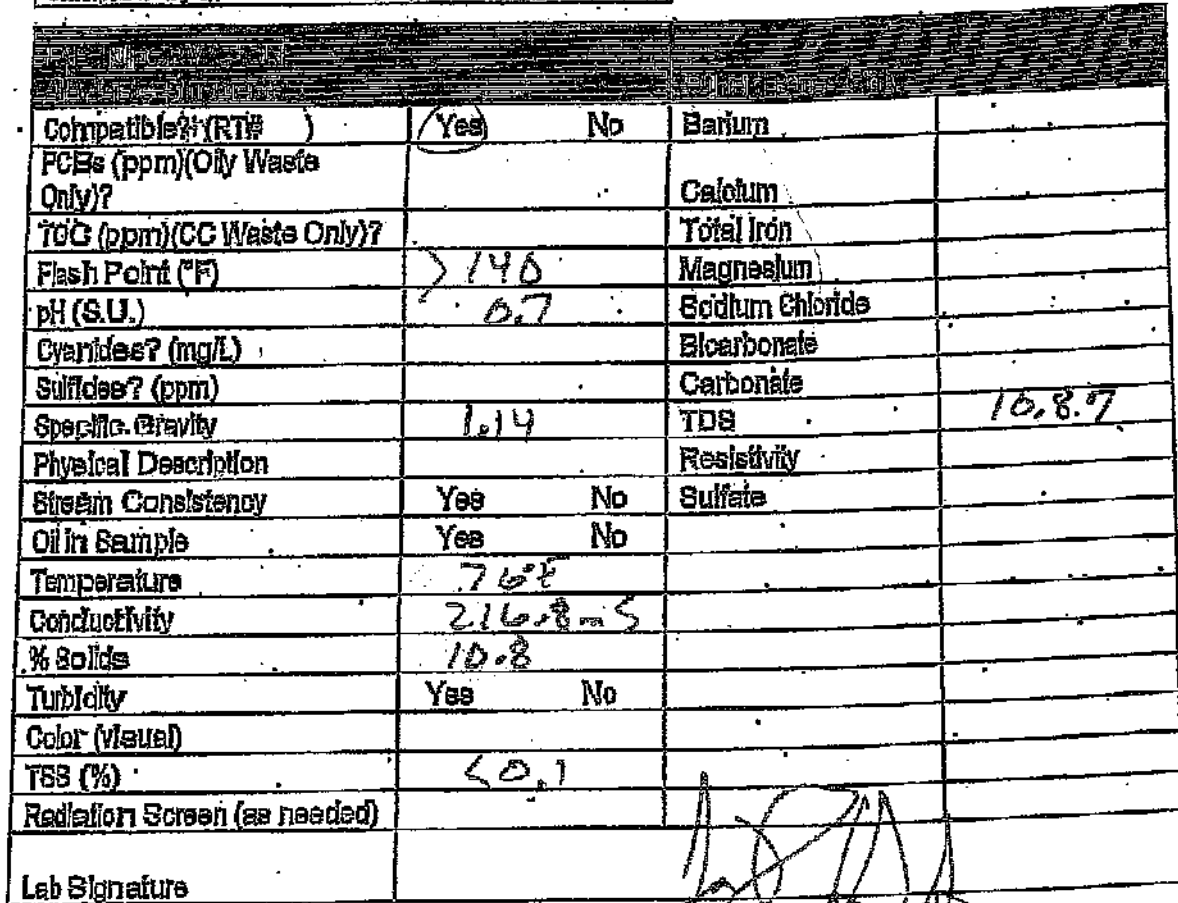 Compatible? (RT# ) Yes No Barium
PCBs (ppm)(Oily Waste
Only)? Calcium
TOC (ppm)(CC Waste Only)? Total Iron
Flash Point (°F) >140 Magnesium
pH (S.U.) 0.7 Sodium Chloride
Cyanides? (mg/L) Bicarbonate
Sulfides? (ppm) Carbonate
Specific Gravity 1.14 TDS 10.8.7
Physical Description Resistivity
Stream Consistency Yes No Sulfate
Oil in Sample Yes No
Temperature 76°F
Conductivity 216.8 mS
% Solids 10.8
Turbidity Yes No
Color (visual)
TSS (%) <0.1
Radiation Screen (as needed)
Lab Signature